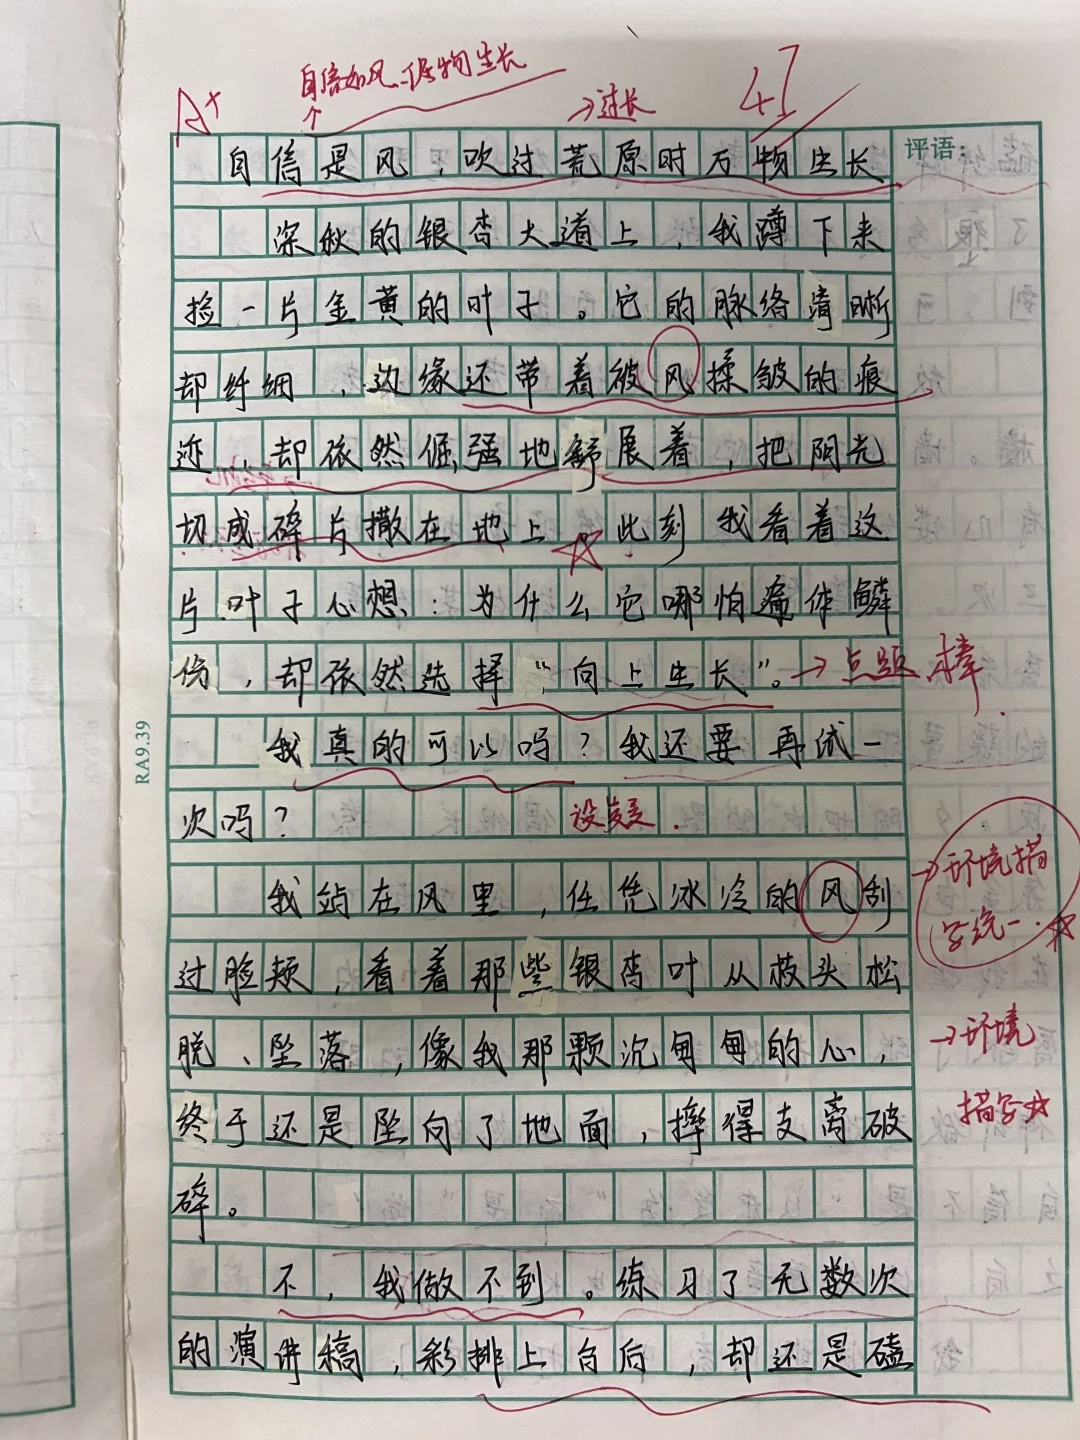 自信如风,万物生长
A+
→过长
47
自信是风,吹过荒原时万物生长
评语:
深秋的银杏大道上,我蹲下来
捡一片金黄的叶子。它的脉络清晰
却纤细,边缘还带着被风揉皱的痕
迹,却依然倔强地舒展着,把阳光
切成碎片撒在地上。此刻我看着这
片叶子心想:为什么它哪怕遍体鳞
伤,却依然选择“向上生长”。
→点题,棒.
我真的可以吗?我还要再试一
次吗?
设疑.
我站在风里,任凭冰冷的风刮
→环境描
写统一.
过脸颊,看着那些银杏叶从枝头松
脱、坠落,像我那颗沉甸甸的心,
→环境
描写
终于还是坠向了地面,摔得支离破
碎。
不,我做不到。练习了无数次
的演讲稿,彩排上台后,却还是磕
RA9.39